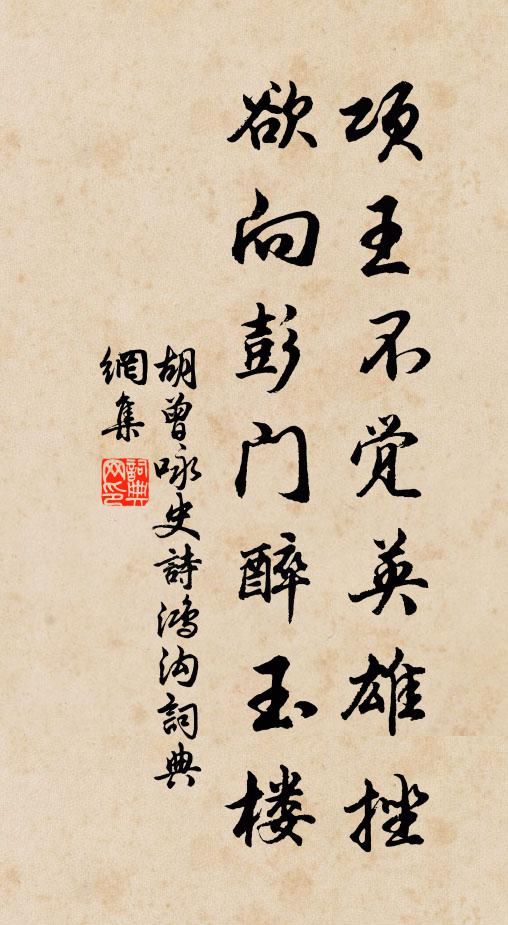 项王不觉英雄挫
欲向彭门醉玉楼
胡曾咏史詩鸿沟詞典
網集
詞典
网印